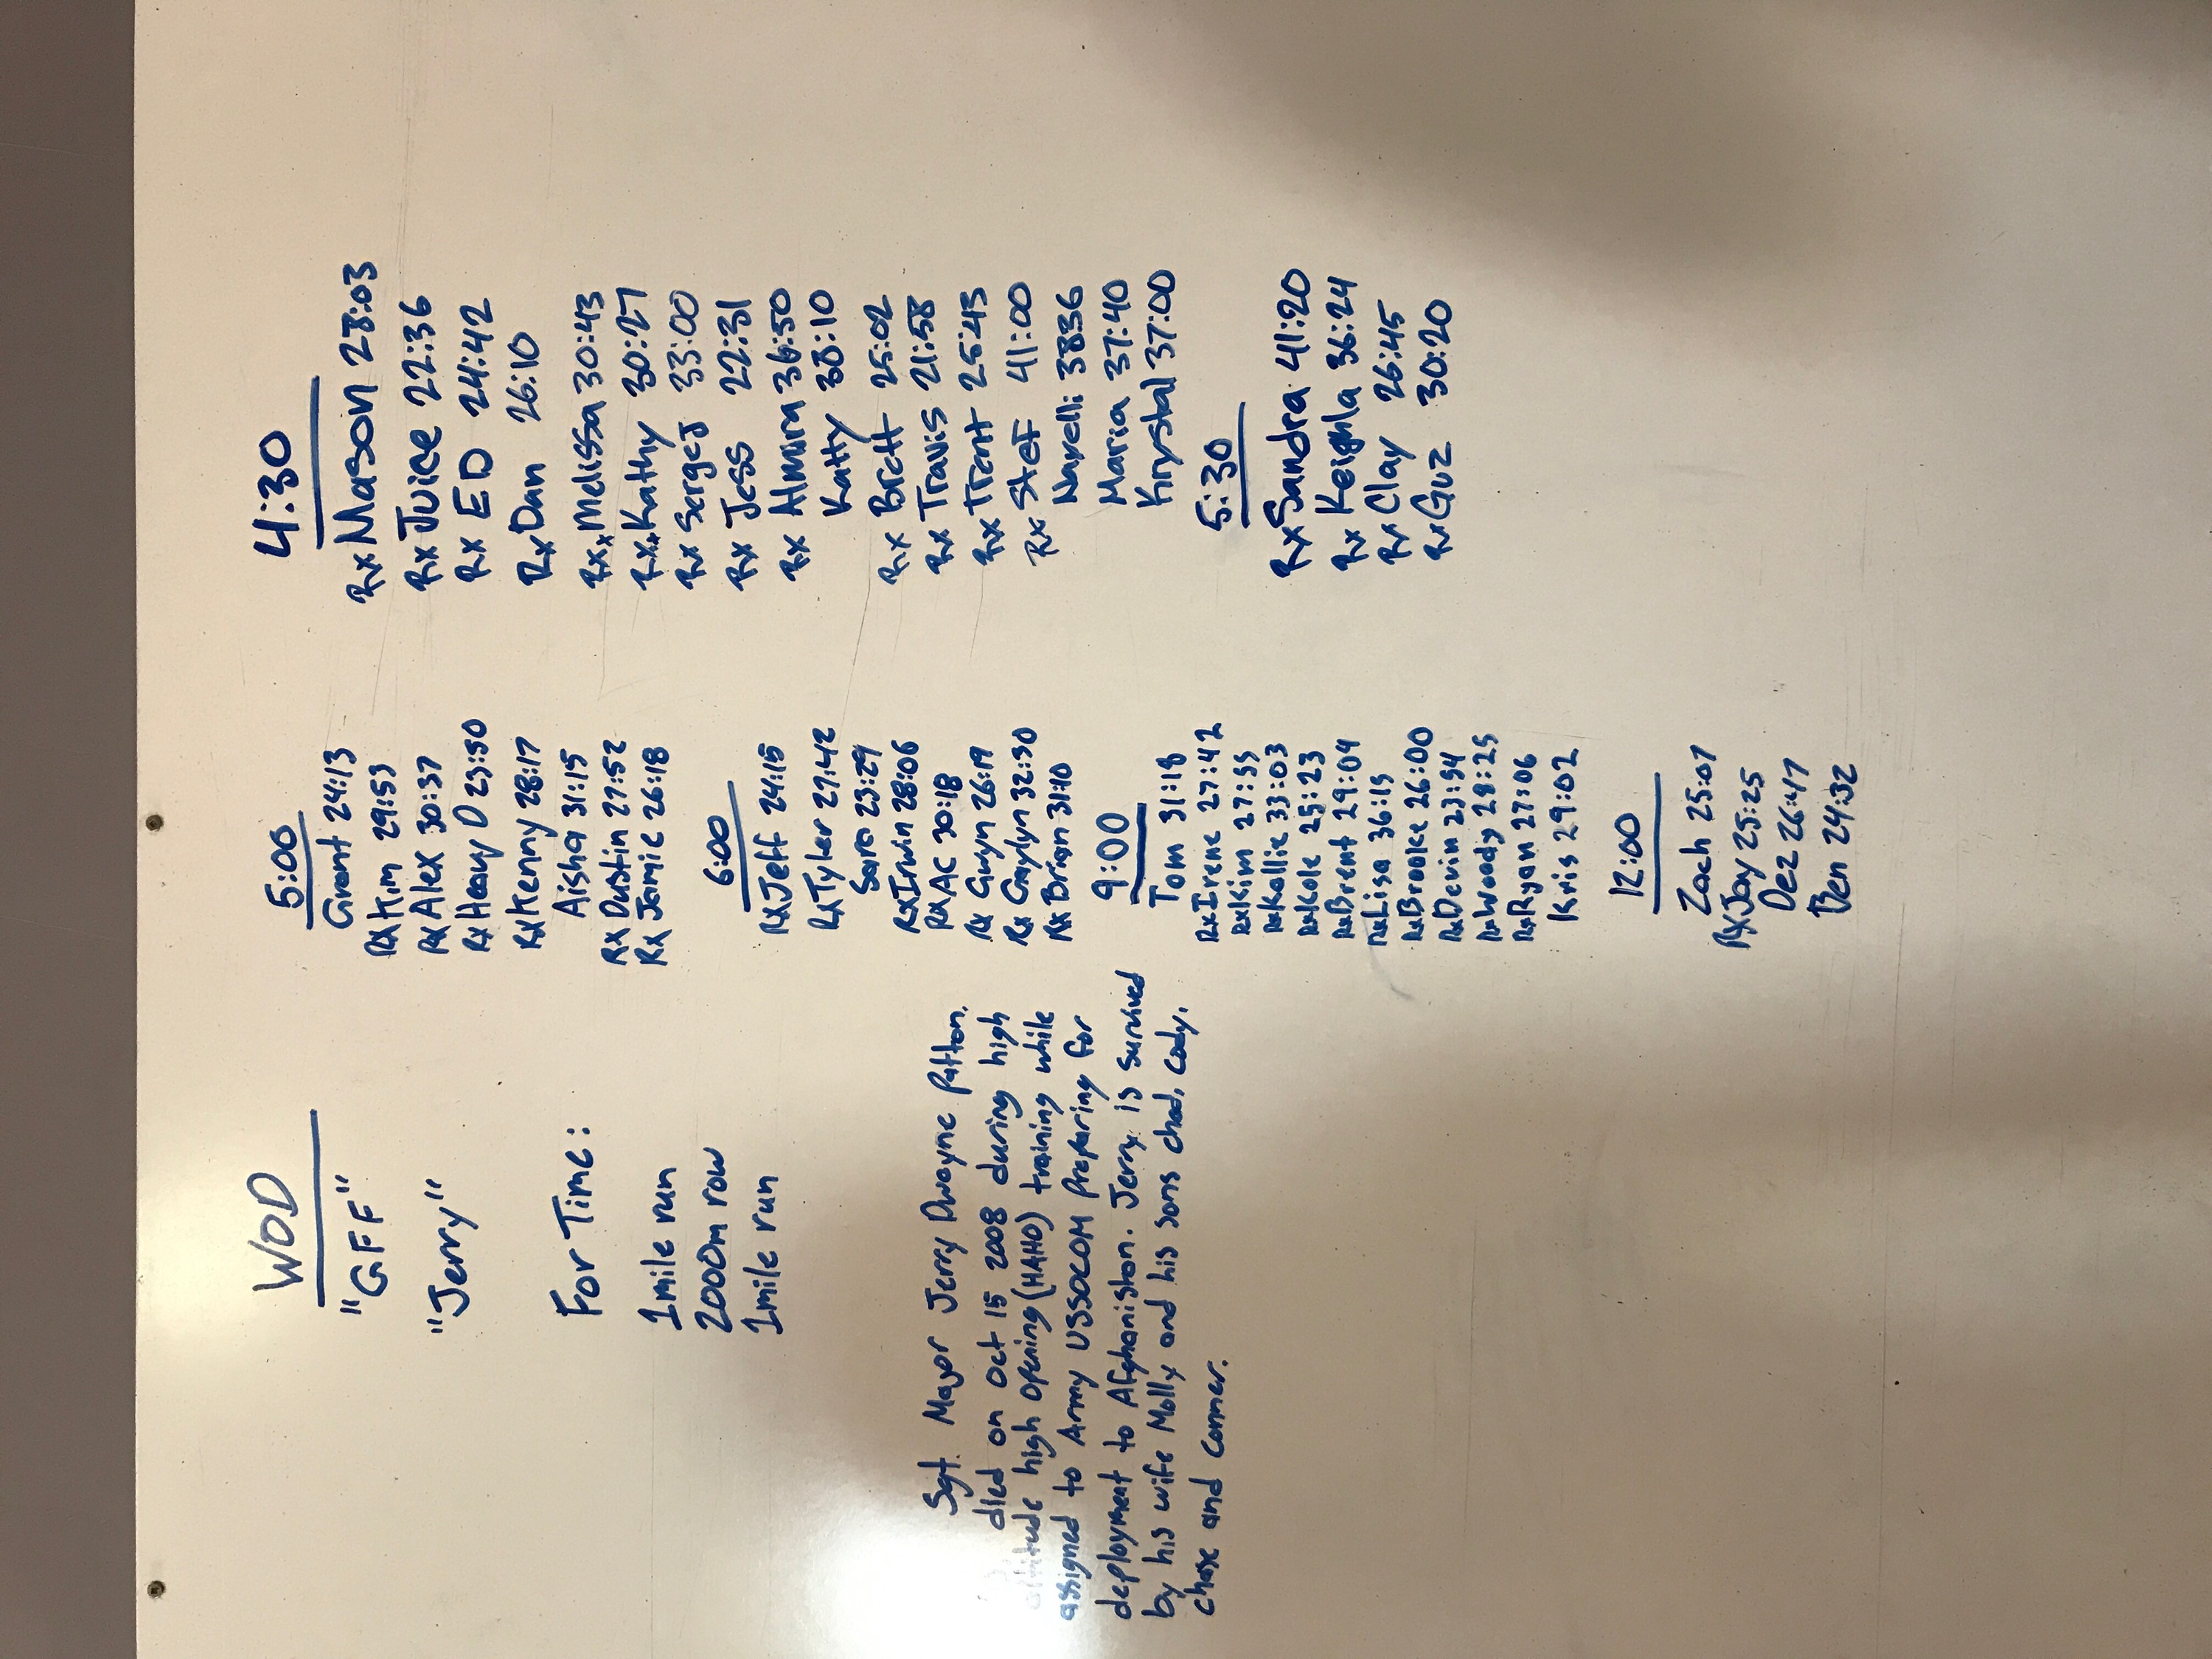 WOD
"GFF"
"Jerry"
For Time:
1mile run
2000m row
1mile run
Sgt. Mayor Jerry Dwayne Patton,
died on Oct 15 2008 during high
altitude high opening (HAHO) training while
assigned to Army USSOCOM Preparing for
deployment to Afghanistan. Jerry is survived
by his wife Molly and his sons chad, Cody,
chase and Conner.
5:00
Grant 24:13
Rx Kim 29:53
Rx Alex 30:37
Rx Heavy D 23:50
Rx Kenny 28:17
Aisha 31:15
Rx Dustin 27:52
Rx Jamie 26:18
6:00
Rx Jeff 24:15
Rx Tyler 27:42
Sara 23:29
Rx Irwin 28:06
Rx AC 30:18
Rx Gwyn 26:19
Rx Gaylyn 32:30
Rx Brian 31:10
9:00
Tom 31:18
Rx Irene 27:42
Rx Kim 27:55
Rx Kallie 33:03
Rx Kole 25:23
Rx Brent 29:04
Rx Lisa 36:15
Rx Brooke 26:00
Rx Devin 23:54
Rx Woody 28:25
Rx Ryan 27:06
Kris 29:02
12:00
Zach 25:07
Rx Jay 25:25
Dez 26:47
Ben 24:32
4:30
Rx Mason 23:03
Rx Juice 22:36
Rx ED 24:42
Rx Dan 26:10
Rx Melissa 30:43
Rx Kathy 30:27
Rx Sergej 33:00
Rx Jess 22:31
Rx Almira 36:50
Katty 38:10
Rx Brett 25:02
Rx Travis 21:58
Rx Trent 25:45
Rx Stef 41:00
Nayelli 3836
Maria 37:40
Krystal 37:00
5:30
Rx Sandra 41:20
Rx Keighla 36:24
Rx Clay 26:45
Rx Guz 30:20